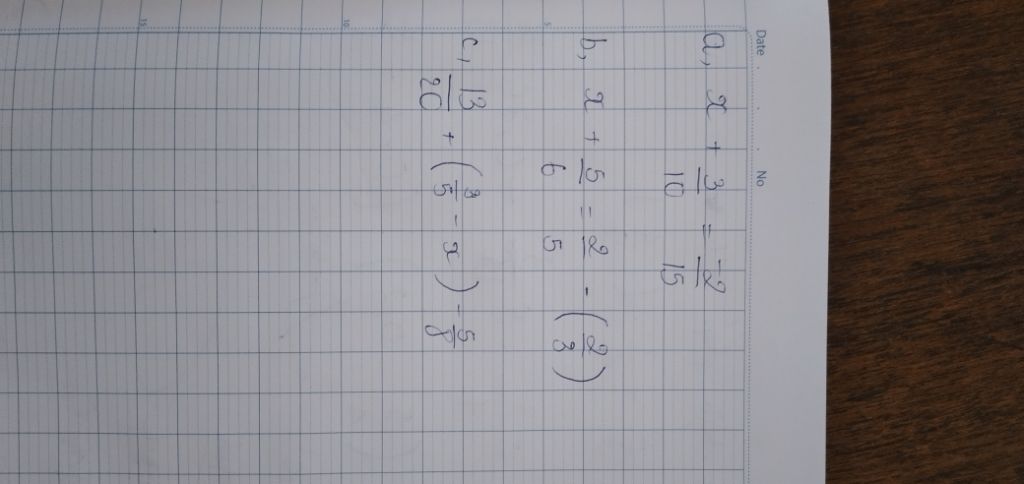 Date . . No
a, x + 3/10 = -2/15
b, x + 5/6 = 2/5 - (2/3)
c, 13/20 + (3/5 - x) - 5/8
5
10
15